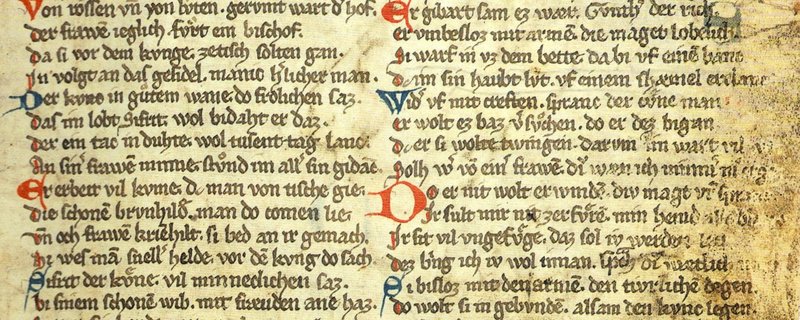 Von wissen vn̄ von lv́ten. gerumt wart d' hof.
der frawē ieglich. fv̊rt ein bischof.
da si vor dem kvnge. zetisch solten gan.
In volgt an das gesidel. manic h'licher man.
Der kvnc in gůtem wane. do frolichen saz.
das im lobt Sifrit. wol bidaht er daz.
der ein tac in duhte. wol tusent tag lanc.
An sinr frawē minne. stv̊nd im all' sin gidāc.
Er erbeit vil kvme. dc man von tische gie.
die schonē brvnhild. man do comen lie.
vn̄ och frawē kriēhilt. si bed an ir gemach.
hi wes mā snell' helde. vor dē kvng do sach.
Sifrit der kv̊ne. vil minneclichen saz.
bi sinem schonē wib. mit freuden ane haz.
Er gibart sam ez wær. Gvnth' der rich.
er vmbesloz mit armē. die maget lobelich.
Si warf in vz dem bette. da bi vf einē banc
dc im sin haubt lvt. vf einem schæmel erclanc
Wid' vf mit creften. spranc der cv̊ne man
er wolt ez baz v'sv̊chen. do er des bigan
dc er si wolte twingen. darvm im wart vil
solh w' vō einr frawē. dī wen ich nimm' m' erg
Do er nit wolt erwindē. div magt vf spranc
Ir sult mir nit zerfv̊rē. min hemd
Ir sit vil vngefv̊ge. daz sol iv werden leit
dez bring ich iv wol innan. sprach dī wetlich
Si bisloz mit den armē. den tivrlichē degen.
do wolt si in gebvndē. alsam den kvnc legen.